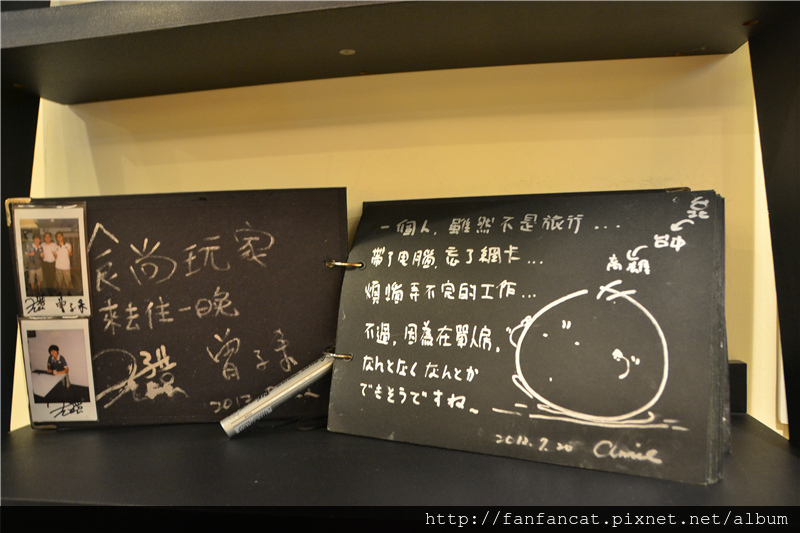 食尚玩家
來去住一晚
曾子余
一個人,雖然不是旅行...
帶了电腦,忘了網卡...
煩惱弄不完的工作...
不過,因為在單人房,
なんとなくなんとか
できそうですね~
台北
台中
高雄
2012.7.20 annie
http://fanfancat.pixnet.net/album